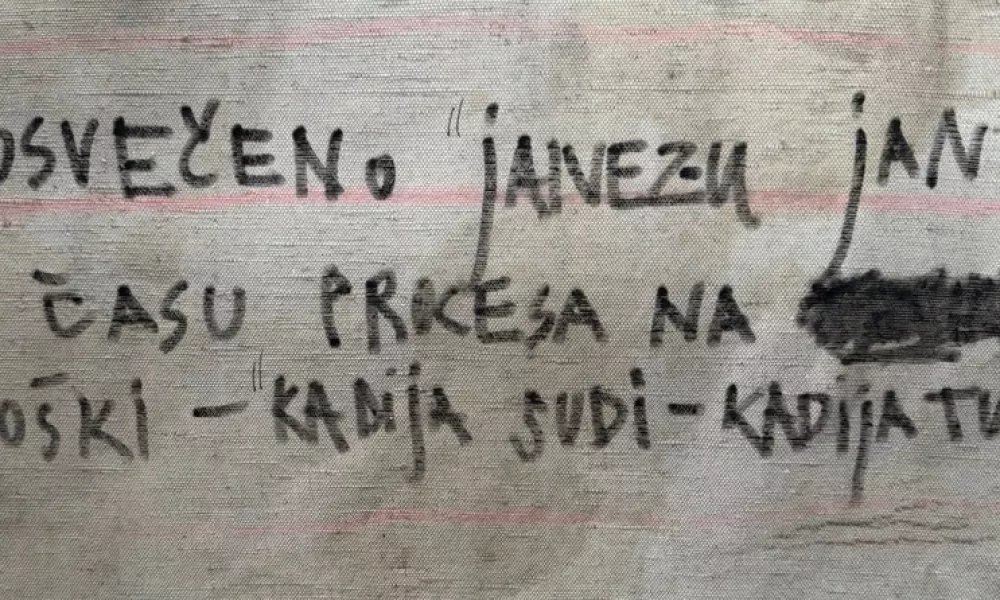 OSVEČENO "jANEZU jAN
ČASU PRKESA NA
OŠKI - "KADIJA SUDI - KADIJA TU